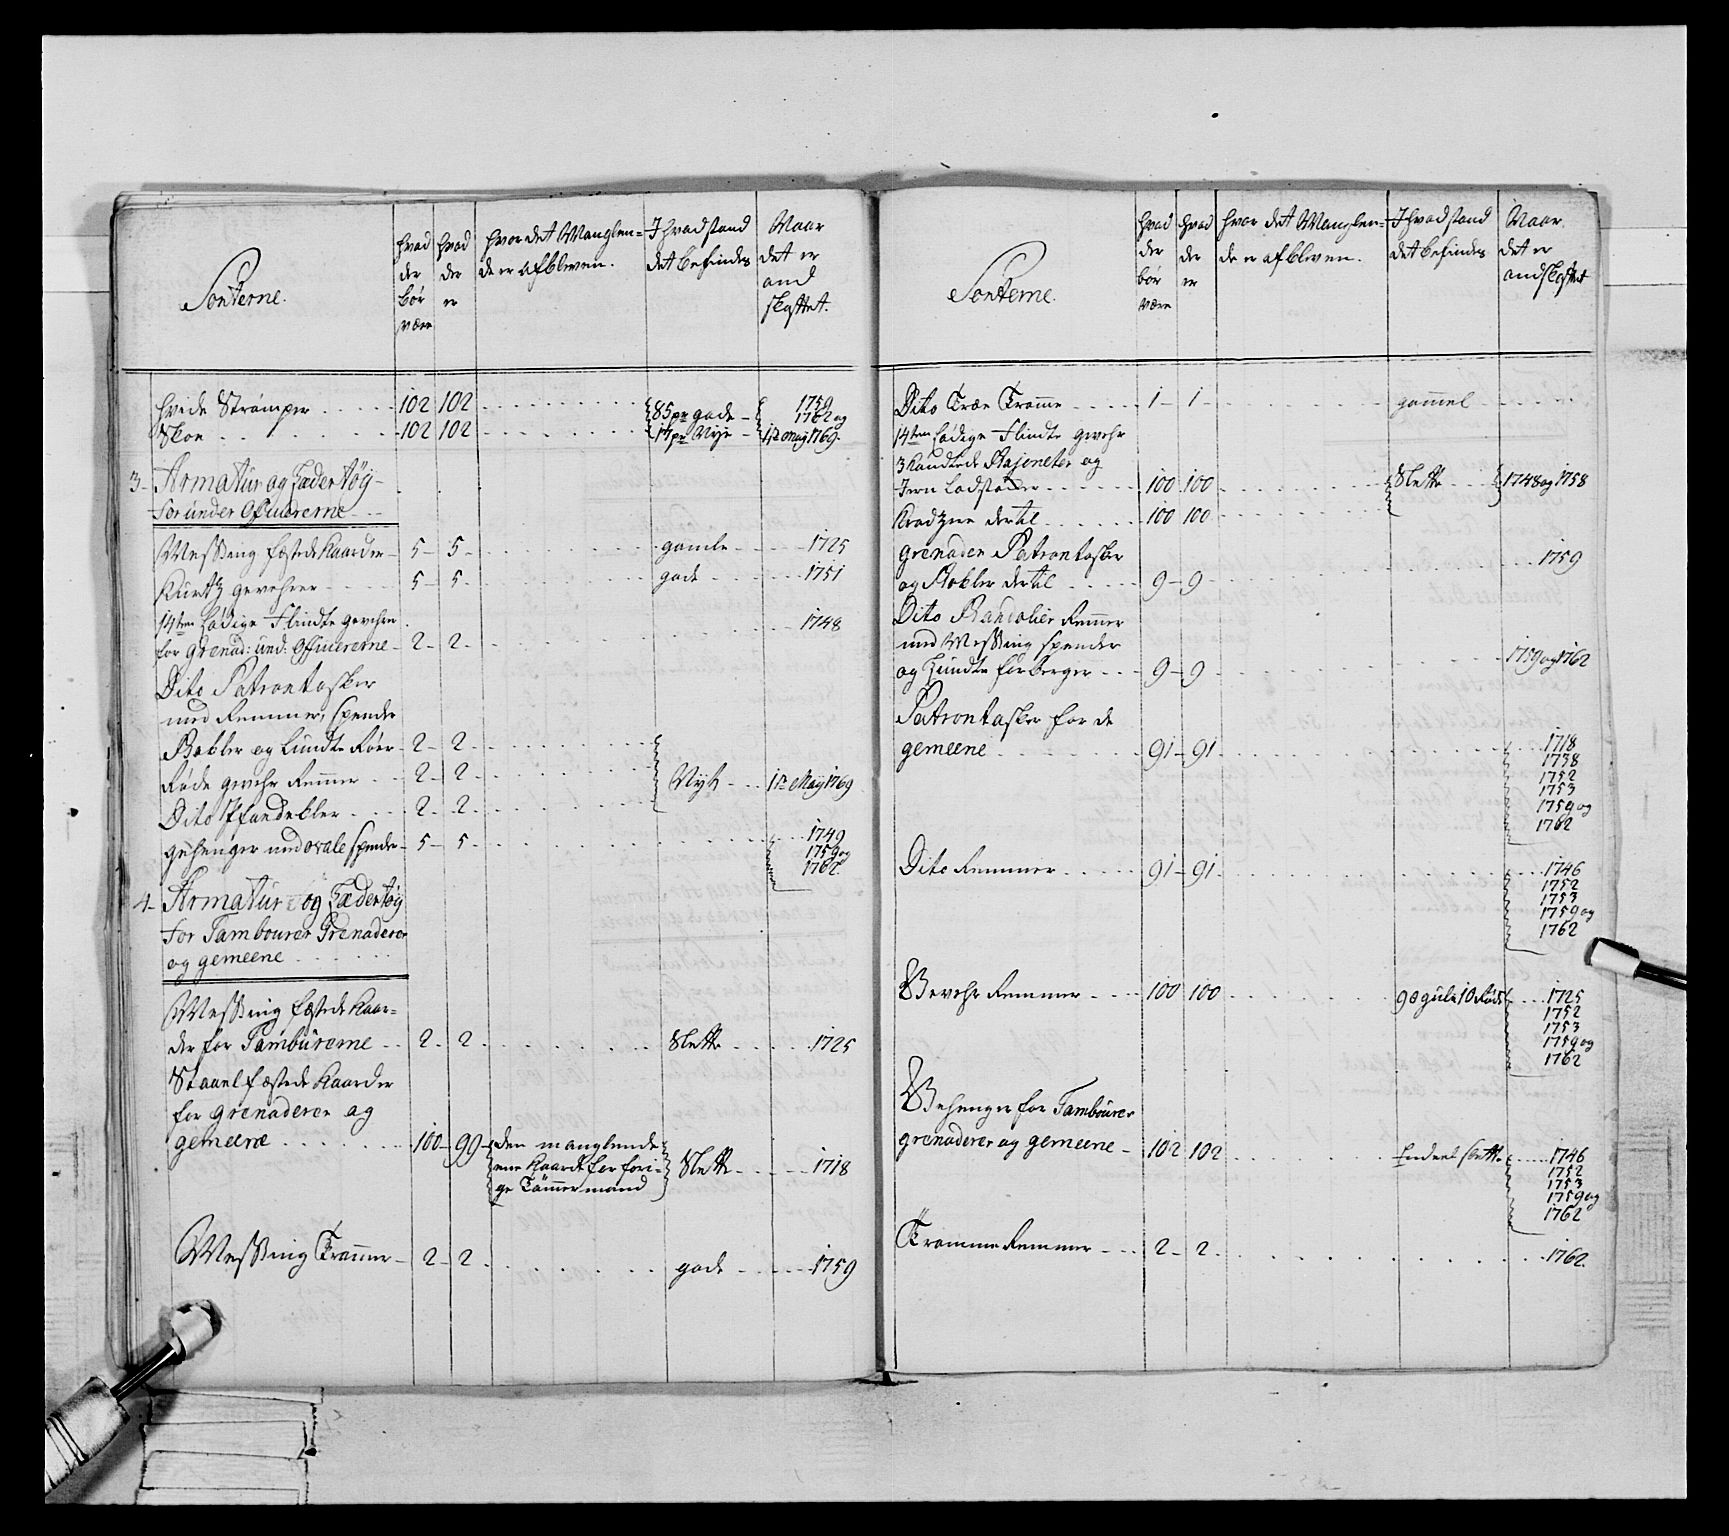 Sorterne.
hvad der bør være
hvad der er
hvor det Manglen=
de er afbleven.
I hvad stand
det befindes
Naar
det er
and
skaffet.
hvide Strømper 102 102
Skoe 102 102
85 pr gode 1759
1762 og
17 pr Nÿe 11te Maÿ 1769.
3. Armatur og Lædertøÿ
for under Officererne
Messing fæstede Kaarder 5 5 gamle 1725
Kurtz gevehrer 5 5 gode 1751
14ten Lødige Flindte gevehre
for Grenad: und: Officererne 2 2 1748
Dito Patrontasker
med Remmer, spender
Bøkler og Lundte Røer 2 2
Røde gevehr Remmer 2 2 Nÿt 11te Maÿ 1769
Dito 2 2
gehenger med ovale spender 5 5 1749
1759 og
1762.
4. Armatur og Lædertøÿ
for Tambourer Grenaderer
og gemeene
Messing fæstede Kaar=
der for Tambùrerne 2 2 Slette 1725
Staael fæstede Kaarder
for grenaderer og
gemeene 100 99 den manglende
ene Kaarde for fori=
ge Tømmermand Slette 1718
Messing Trommer 2 2 gode 1759
Sorterne.
hvad der bør være
hvad der er
hvor det Manglen=
de er afbleven.
I hvad stand
det befindes
Naar
det er
andskaffet
Dito Træe Tromme 1 1 gammel
14ten Lødige Flindte gevehr
3 Kandtede Bajonetter og
Jern Ladstokker 100 100 Slette 1748 og 1758
Kradzere dertil 100 100
grenadeer Patrontasker
og Bøkler dertil 9 9 1759
Dito Bandolier Remmer
med Messing spender
og Lundte forberger 9 9 1759 og 1762
Patrontasker for de
gemeene 91 91 1718
1738
1752
1753
1759 og
1762
Dito Remmer 91 91 1746
1752
1753
1759 og
1762
Gevehr Remmer 100 100 90 gùle 10 Røde 1725
1752
1753
1759 og
1762
Gehenger for Tambùrer
grenaderer og gemeene 102 102 Endeel slette 1746
1752
1753
1759 og
1762
Tromme Remmer 2 2 1762.